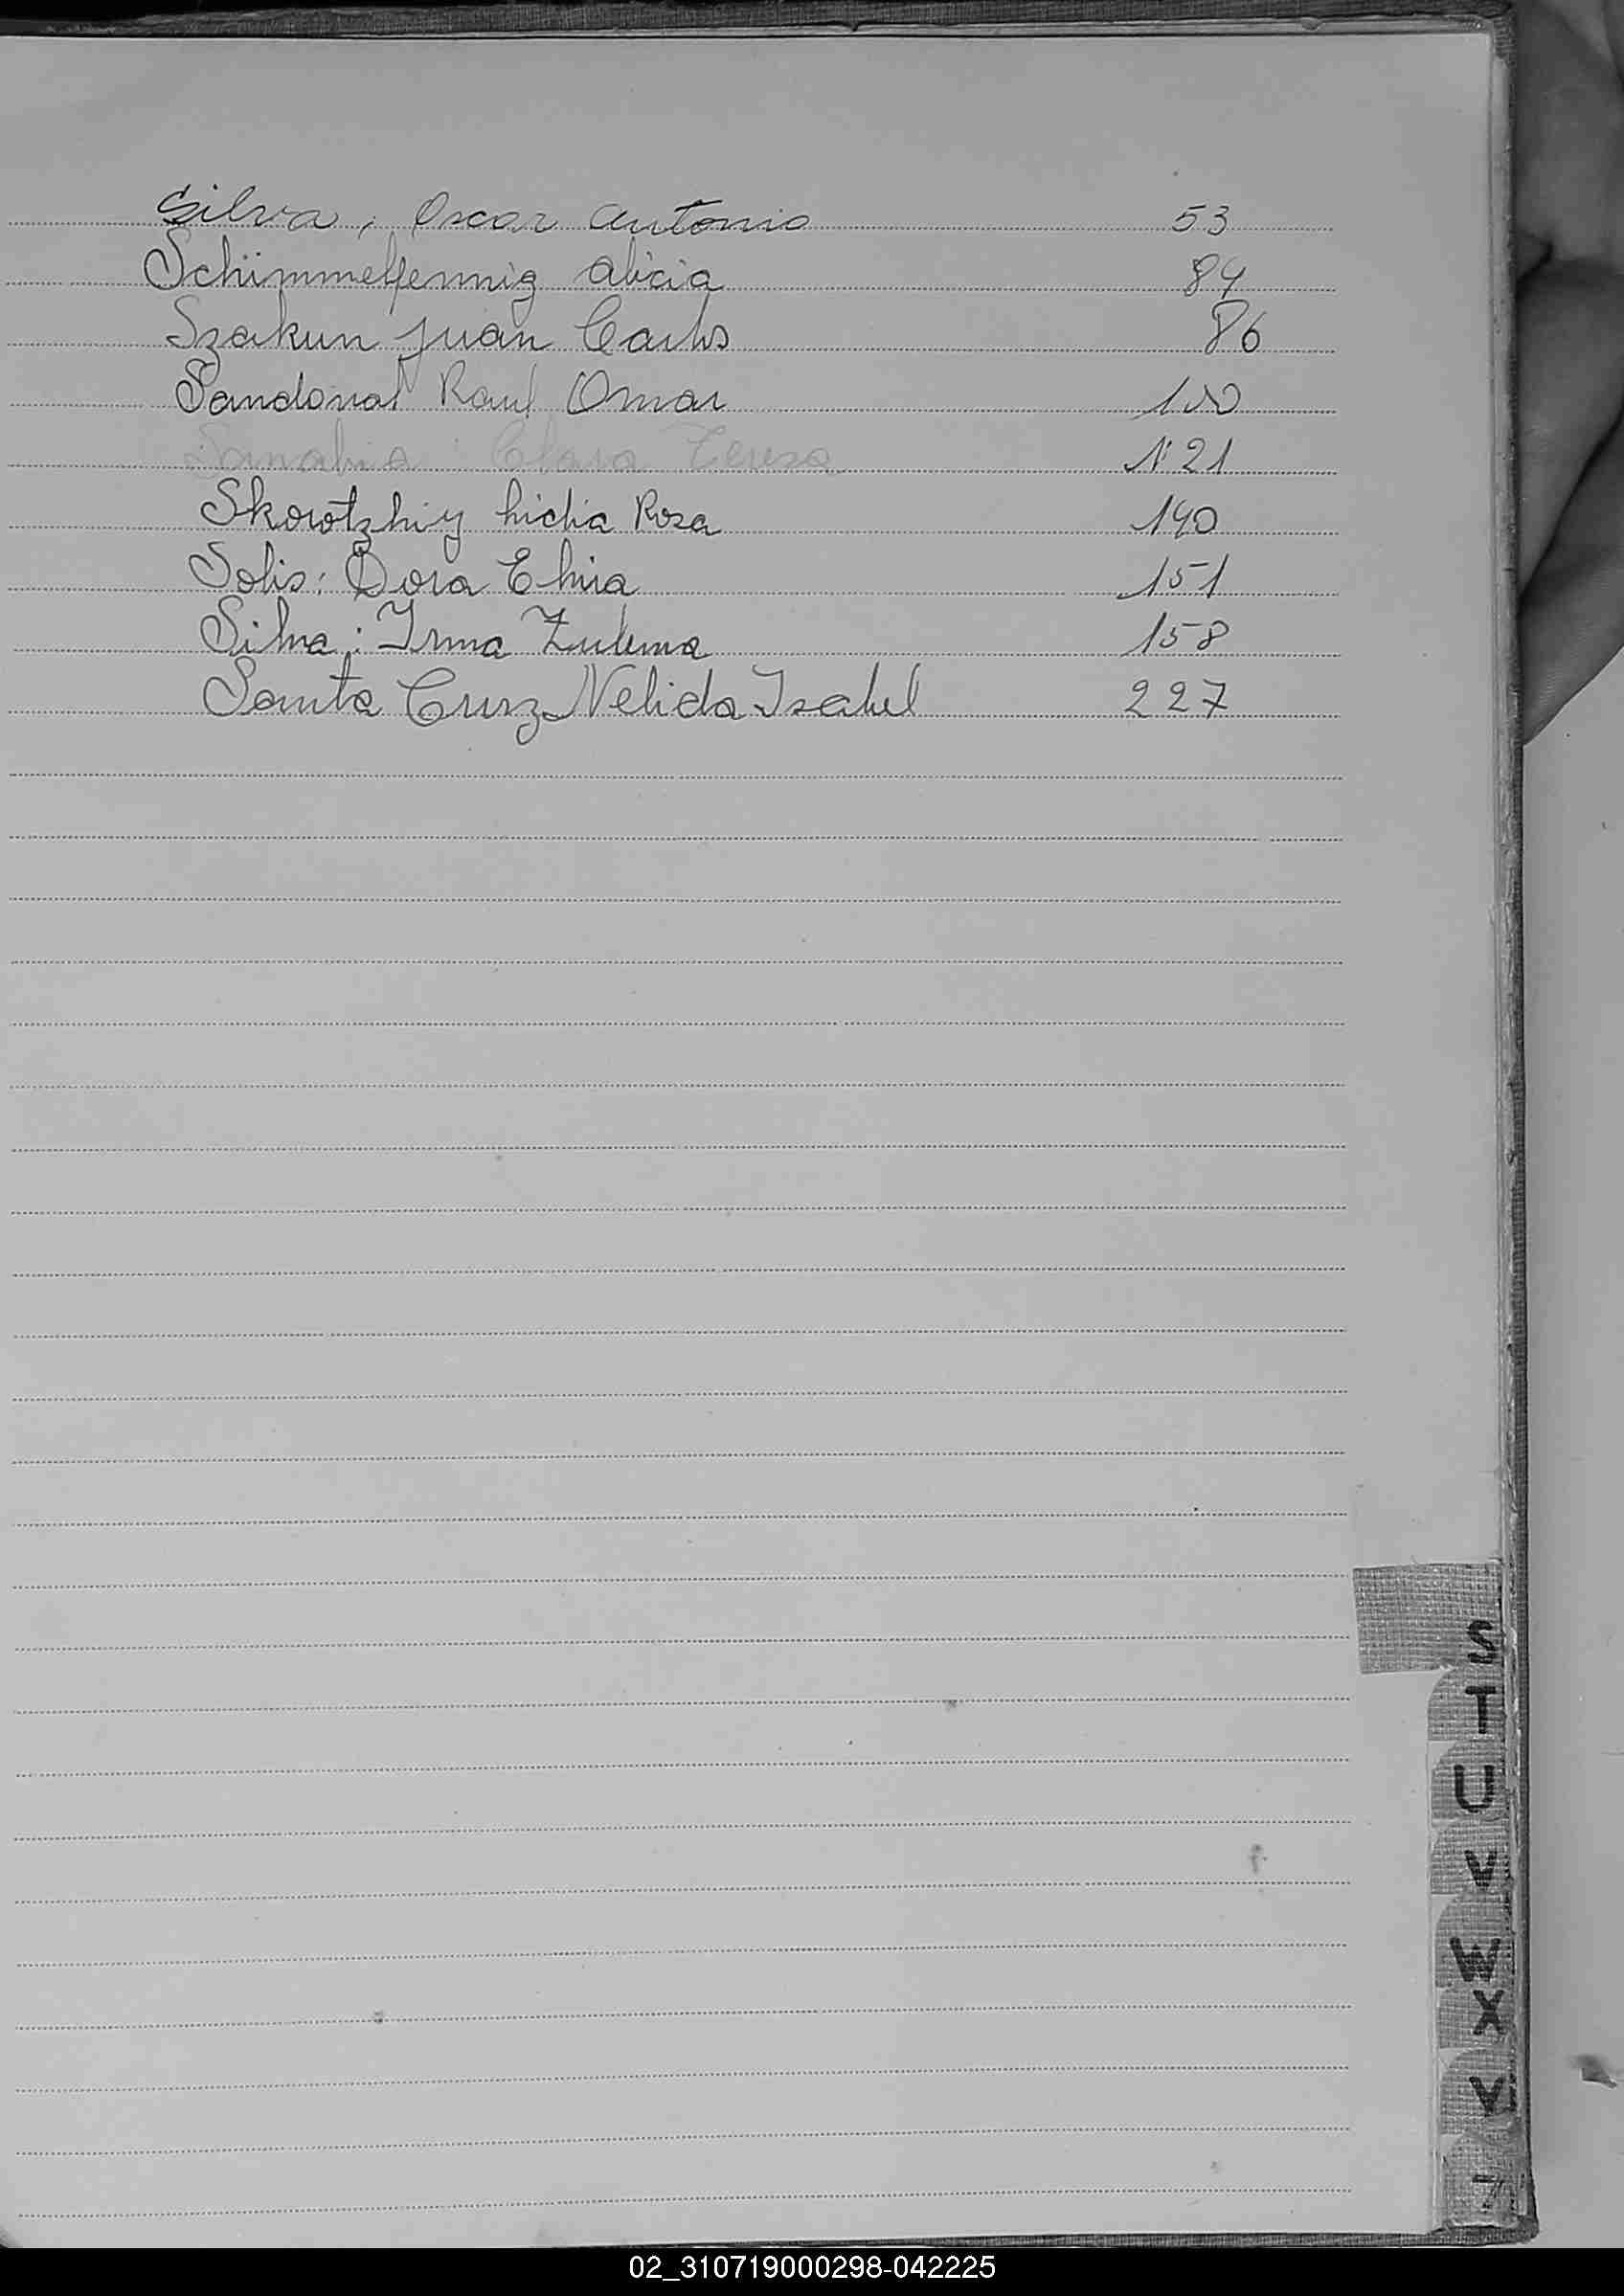 Silva, Oscar Antonio 53
Schimmelfennig Alicia 84
Szakun Juan Carlos 86
Sandoval Raul Omar 100
Sanabria: Clara Teresa 121
Lidia Rosa 140
Solis: Dora Elvira 151
Silva: Irma Zulema 158
Santa Cruz Nelida Isabel 227
S
T
U
V
W
X
Y
Z
02_310719000298-042225